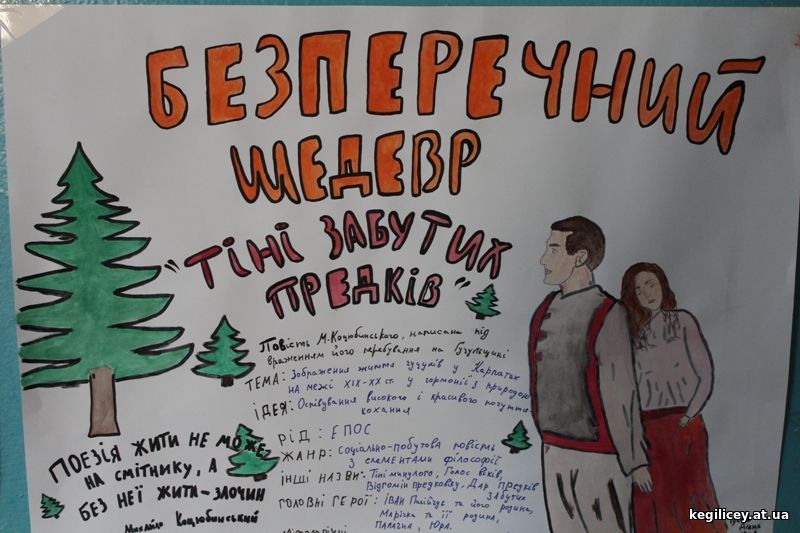 БЕЗПЕРЕЧНИЙ
ШЕДЕВР
"ТІНІ ЗАБУТИХ
ПРЕДКІВ"
Повість М. Коцюбинського, написана під
враженням його перебування на Гуцульщині
ТЕМА: Зображення життя гуцулів у Карпатах
на межі XIX-XX ст. у гармонії з природою
ІДЕЯ: Оспівування високого і красивого почуття
кохання
РІД: ЕПОС
ЖАНР: СОЦІАЛЬНО-ПОБУТОВА ПОВІСТЬ
З ЕЛЕМЕНТАМИ ФІЛОСОФІЇ
ІНШІ НАЗВИ: Тіні минулого, Голос віків,
Відгомін предковіку, Дар предків
забутих
ГОЛОВНІ ГЕРОЇ: ІВАН Палійчук та його родина,
Марічка та її родина,
ПАЛАГНА, ЮРА.
ПОЕЗІЯ ЖИТИ НЕ МОЖЕ
НА СМІТНИКУ, А
БЕЗ НЕЇ ЖИТИ - ЗЛОЧИН
Михайло Коцюбинський
Діана
kegilicey.at.ua